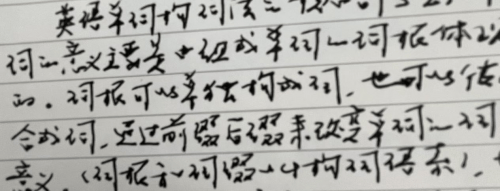 英语单词构词法
词的意义主要是由组成单词的词根体现
的。词根可以单独构成词，也可以彼
合成词，通过前缀后缀来改变单词的词
意义。(词根和词缀 构词语素)